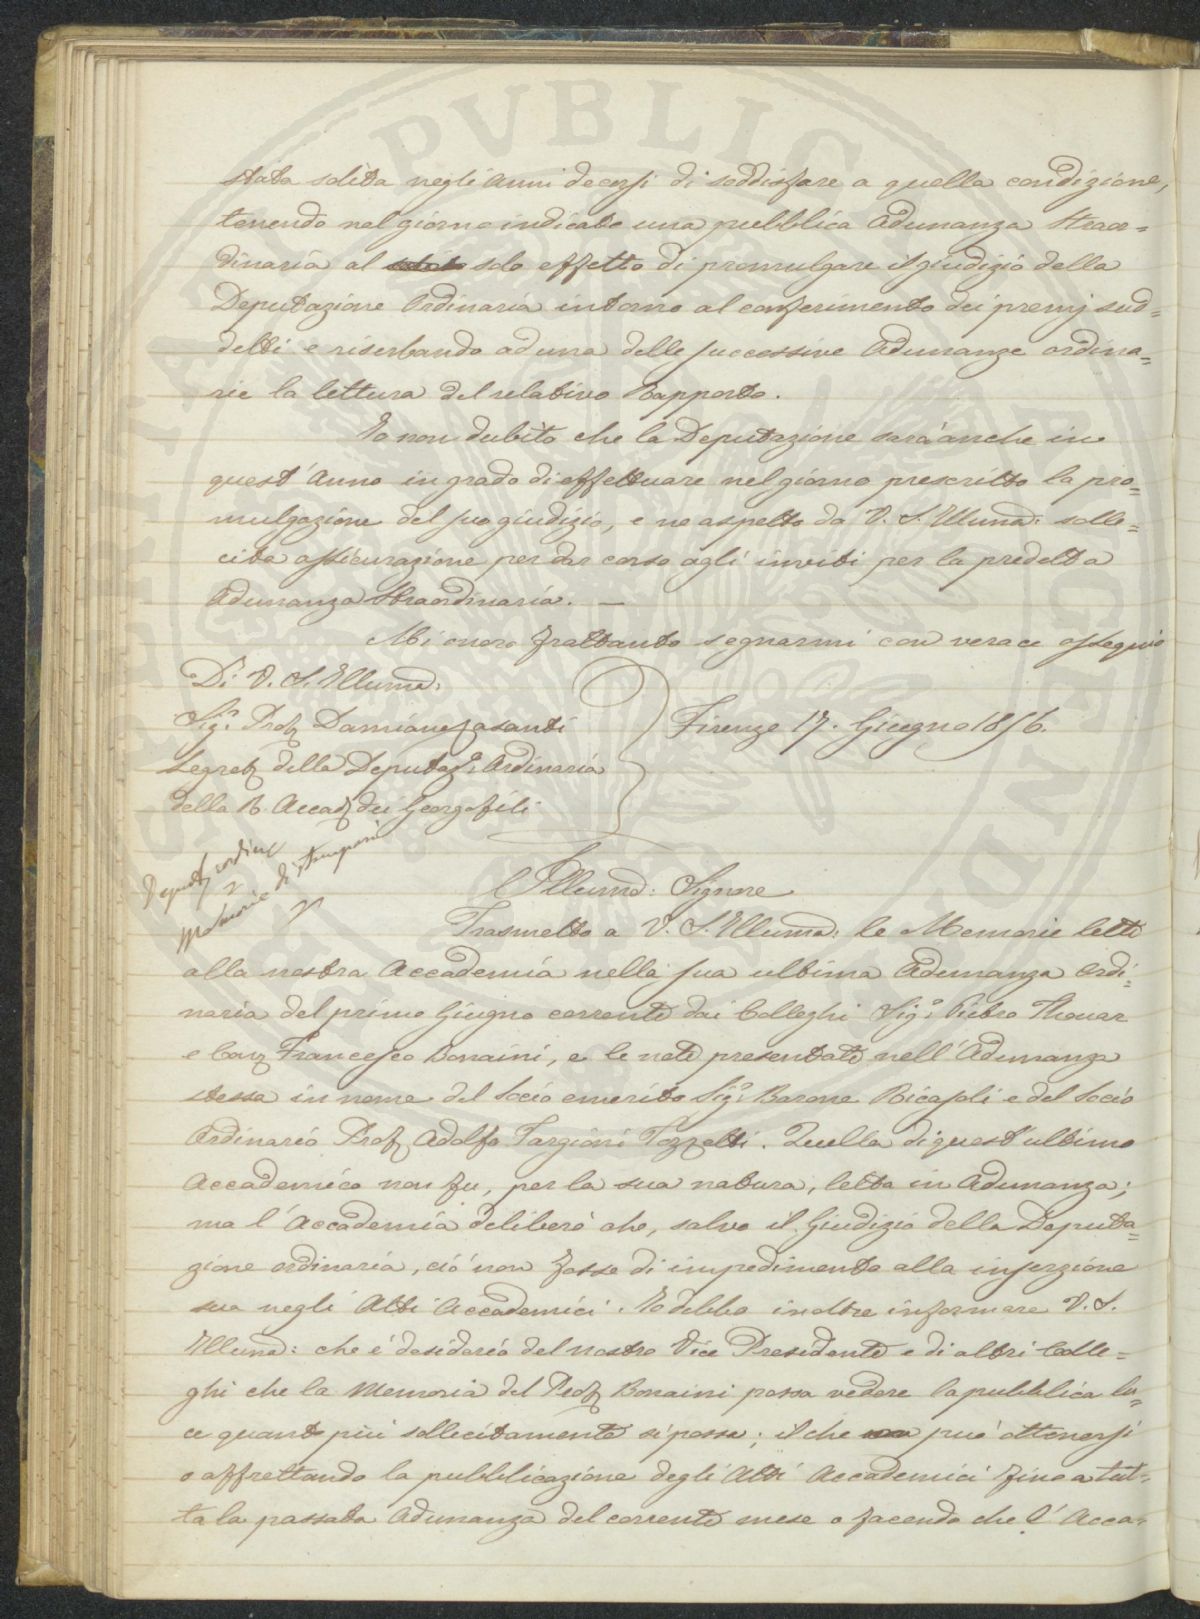 stata solita negli anni decorsi di soddisfare a quella condizione,
tenendo nel giorno indicato una pubblica Adunanza Straor=
dinaria al solo effetto di promulgare il giudizio della
Deputazione Ordinaria intorno al conferimento dei premj sud=
detti e riserbando ad una delle successive Adunanze ordina=
rie la lettura del relativo Rapporto.
Io non dubito che la Deputazione sarà anche in
quest'Anno in grado di effettuare nel giorno prescritto la pro=
mulgazione del suo giudizio, e ne aspetto da V. S. Illuma: solle=
cita assicurazione per dar corso agli inviti per la predetta
Adunanza Straordinaria. —
Mi onoro frattanto segnarmi con verace ossequio
Di V. S. Illuma:
Sigr. Prof. Damiano Casanti
Segret. della Deputaz.e Ordinaria
della R. Accad. dei Georgofili
Firenze 17. Giugno 1856.
Deput. ordine
Memorie di stamparsi
Illumo: Signore
Trasmetto a V. S. Illuma: le Memorie lette
alla nostra Accademia nella sua ultima Adunanza Ordi=
naria del primo Giugno corrente dai Colleghi Sigr: Pietro Thouar
e Cav. Francesco Bonaini, e le note presentate nell'Adunanza
stessa in nome del Socio emerito Sigr: Barone Ricasoli e del Socio
Ordinario Prof. Adolfo Targioni Tozzetti. Quella di quest'ultimo
Accademico non fu, per la sua natura, letta in Adunanza;
ma l'Accademia deliberò che, salvo il Giudizio della Deputa=
zione ordinaria, ciò non fosse di impedimento alla inserzione
sua negli Atti Accademici. Io debbo inoltre informare V. S.
Illuma: che è desiderio del nostro Vice Presidente e di altri Colle=
ghi che la Memoria del Prof. Bonaini possa vedere la pubblica lu=
ce quanto più sollecitamente si possa; il che può ottenersi
o affrettando la pubblicazione degli Atti Accademici fino a tut=
ta la passata Adunanza del corrente mese o facendo che l'Acca=
PVBLIC